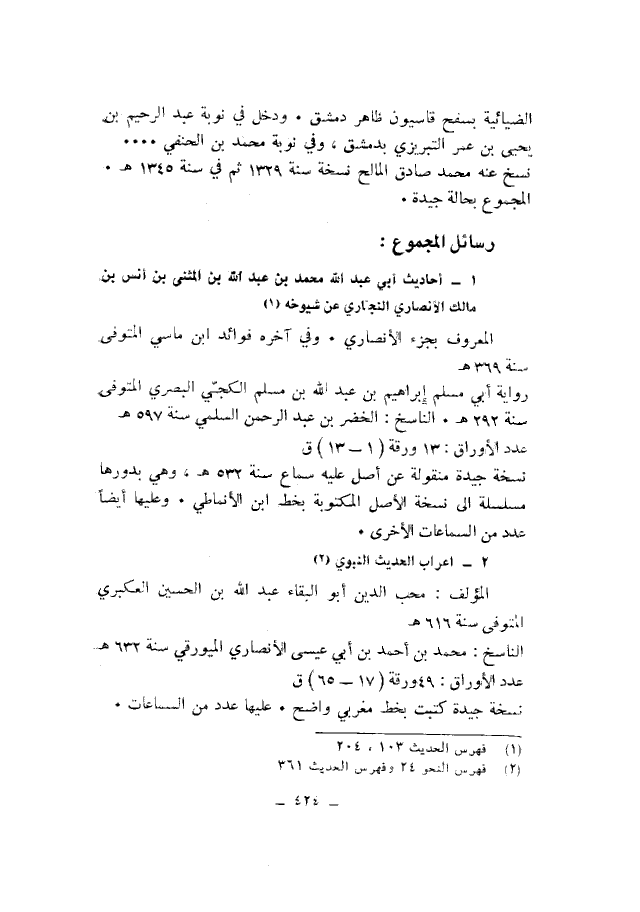 الضيائية بسفح قاسيون ظاهر دمشق • ودخل في نوبة عبد الرحيم بن
يحيى بن عمر التبريزي بدمشق ، وفي نوبة محمد بن الحنفي ••••
نسخ عنه محمد صادق المالح نسخة سنة ١٣٢٩ ثم في سنة ١٣٤٥ هـ •
المجموع بحالة جيدة •
رسائل المجموع :
١ ــ أحاديث أبي عبد الله محمد بن عبد الله بن المثنى بن أنس بن
مالك الأنصاري النجاري عن شيوخه (١)
المعروف بجزء الأنصاري • وفي آخره فوائد ابن ماسي المتوفى
سنة ٣٦٩ هـ
رواية أبي مسلم إبراهيم بن عبد الله بن مسلم الكجّي البصري المتوفى
سنة ٢٩٢ هـ • الناسخ : الخضر بن عبد الرحمن السلمي سنة ٥٩٧ هـ
عدد الأوراق : ١٣ ورقة ( ١ ــ ١٣ ) ق
نسخة جيدة منقولة عن أصل عليه سماع سنة ٥٣٢ هـ ، وهي بدورها
مسلسلة الى نسخة الأصل المكتوبة بخط ابن الأنماطي • وعليها أيضاً
عدد من السماعات الأخرى •
٢ ــ اعراب الحديث النبوي (٢)
المؤلف : محب الدين أبو البقاء عبد الله بن الحسين العكبري
المتوفى سنة ٦١٦ هـ
الناسخ : محمد بن أحمد بن أبي عيسى الأنصاري الميورقي سنة ٦٣٢ هـ
عدد الأوراق : ٤٩ورقة ( ١٧ ــ ٦٥ ) ق
نسخة جيدة كتبت بخط مغربي واضح • عليها عدد من السماعات •
(١) فهرس الحديث ١٠٣ ، ٢٠٤
(٢) فهرس النحو ٢٤ وفهرس الحديث ٣٦١
ــ ٤٢٤ ــ